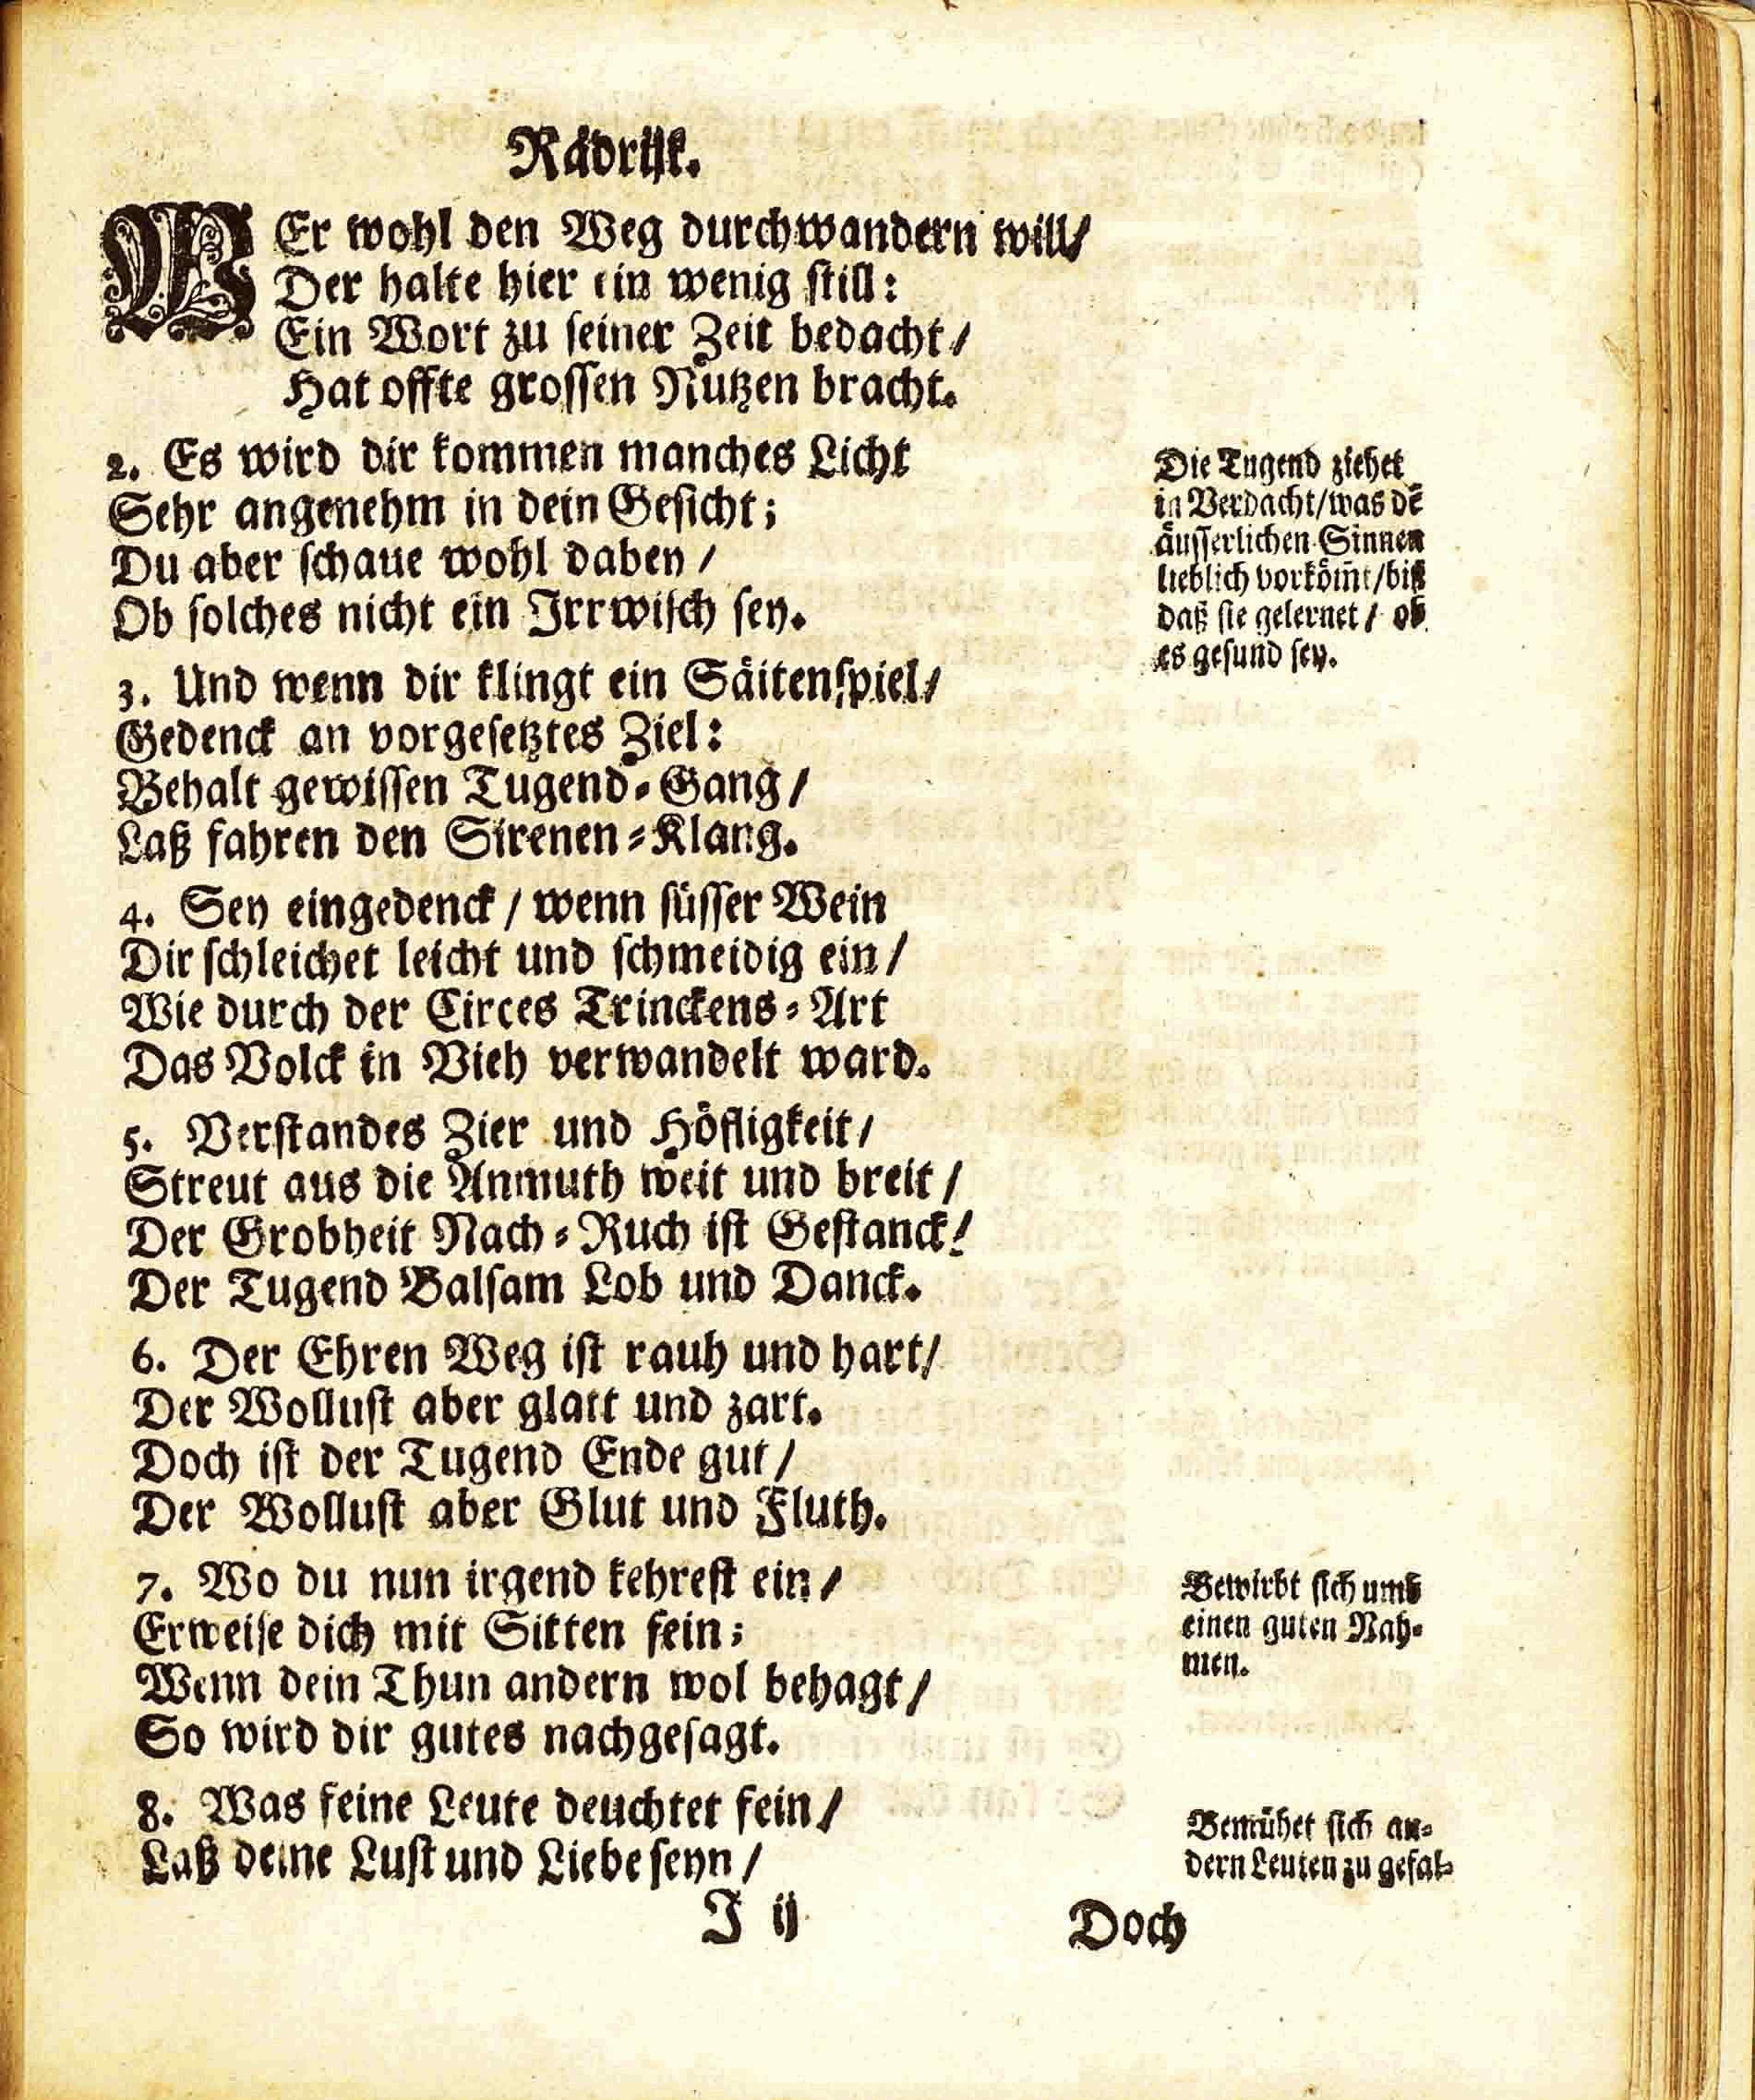 Rädrijk.
WEr wohl den Weg durchwandern will/
Der halte hier ein wenig still:
Ein Wort zu seiner Zeit bedacht/
Hat offte grossen Nutzen bracht.
2. Es wird dir kommen manches Licht
Sehr angenehm in dein Gesicht;
Du aber schaue wohl dabey/
Ob solches nicht ein Irrwisch sey.
3. Und wenn dir klingt ein Säitenspiel/
Gedenck an vorgesetztes Ziel:
Behalt gewissen Tugend-Gang/
Laß fahren den Sirenen-Klang.
4. Sey eingedenck/wenn süsser Wein
Dir schleichet leicht und schmeidig ein/
Wie durch der Circes Trinckens-Art
Das Volck in Vieh verwandelt ward.
5. Verstandes Zier und Höfligkeit/
Streut aus die Anmuth weit und breit/
Der Grobheit Nach-Ruch ist Gestanck!
Der Tugend Balsam Lob und Danck.
6. Der Ehren Weg ist rauh und hart/
Der Wollust aber glatt und zart.
Doch ist der Tugend Ende gut/
Der Wollust aber Glut und Fluth.
7. Wo du nun irgend kehrest ein/
Erweise dich mit Sitten fein;
Wenn dein Thun andern wol behagt/
So wird dir gutes nachgesagt.
8. Was feine Leute deuchtet fein/
Laß deine Lust und Liebe seyn/
Die Tugend ziehet
in Verdacht/was dẽ
äusserlichen Sinnen
lieblich vorköm̃t/biß
daß sie gelernet/ ob
es gesund sey.
Bewirbt sich umb
einen guten Nah-
men.
Bemühet sich an-
dern Leuten zu gefal-
J ij
Doch